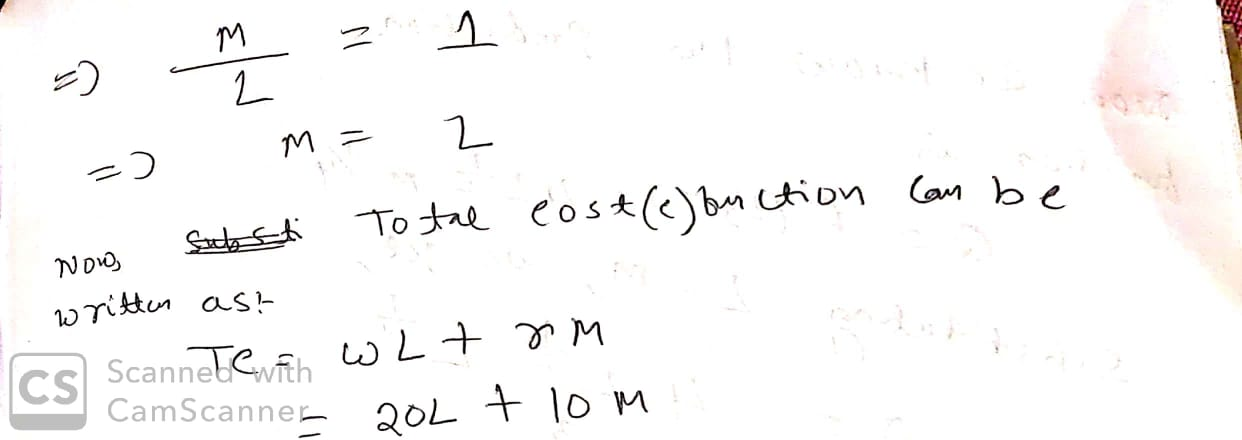 => M/2 = 1
=> M = 2
Now, Substi Total cost(c) function can be
written as:-
TC = wL + rM
= 20L + 10M
CS Scanned with
CamScanner